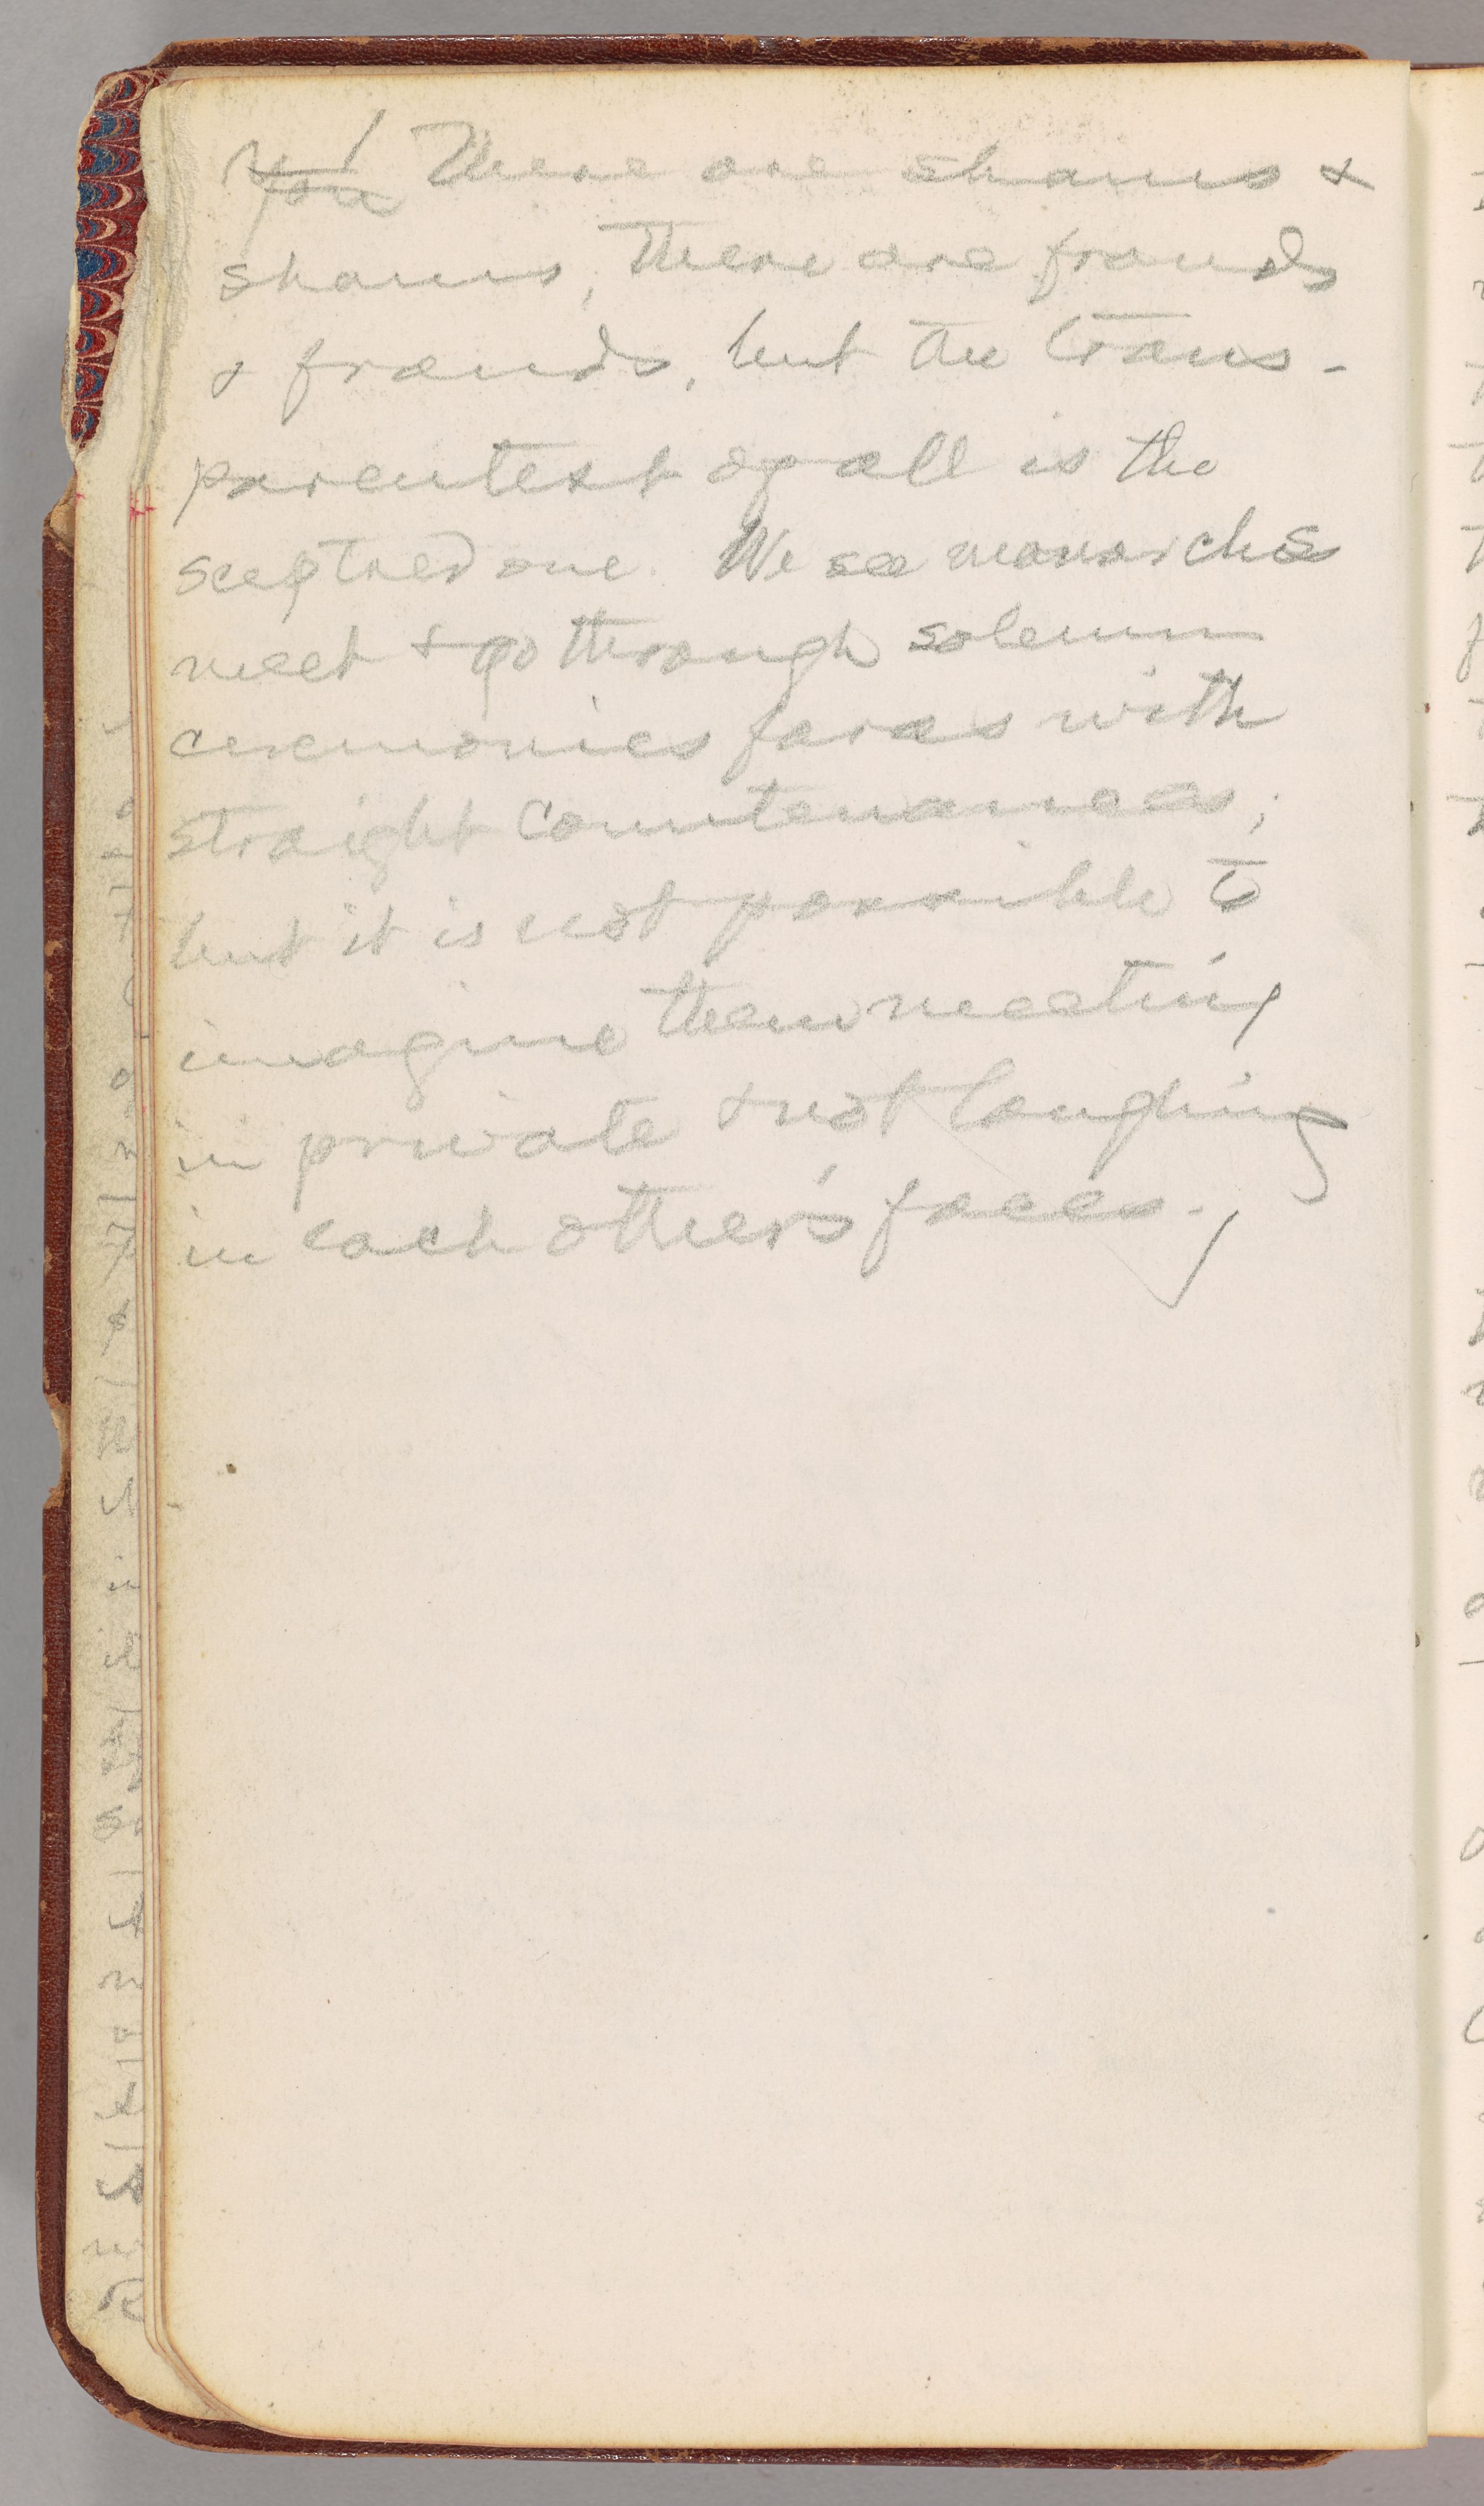 There are shams &
shams, there are frauds
& frauds, but the trans-
parentest of all is the
sceptred one. We see monarchs
meet & go through solemn
ceremonies, farces with
straight countenances;
but it is not possible to
imagine them meeting
in private & not laughing
in each other's faces.